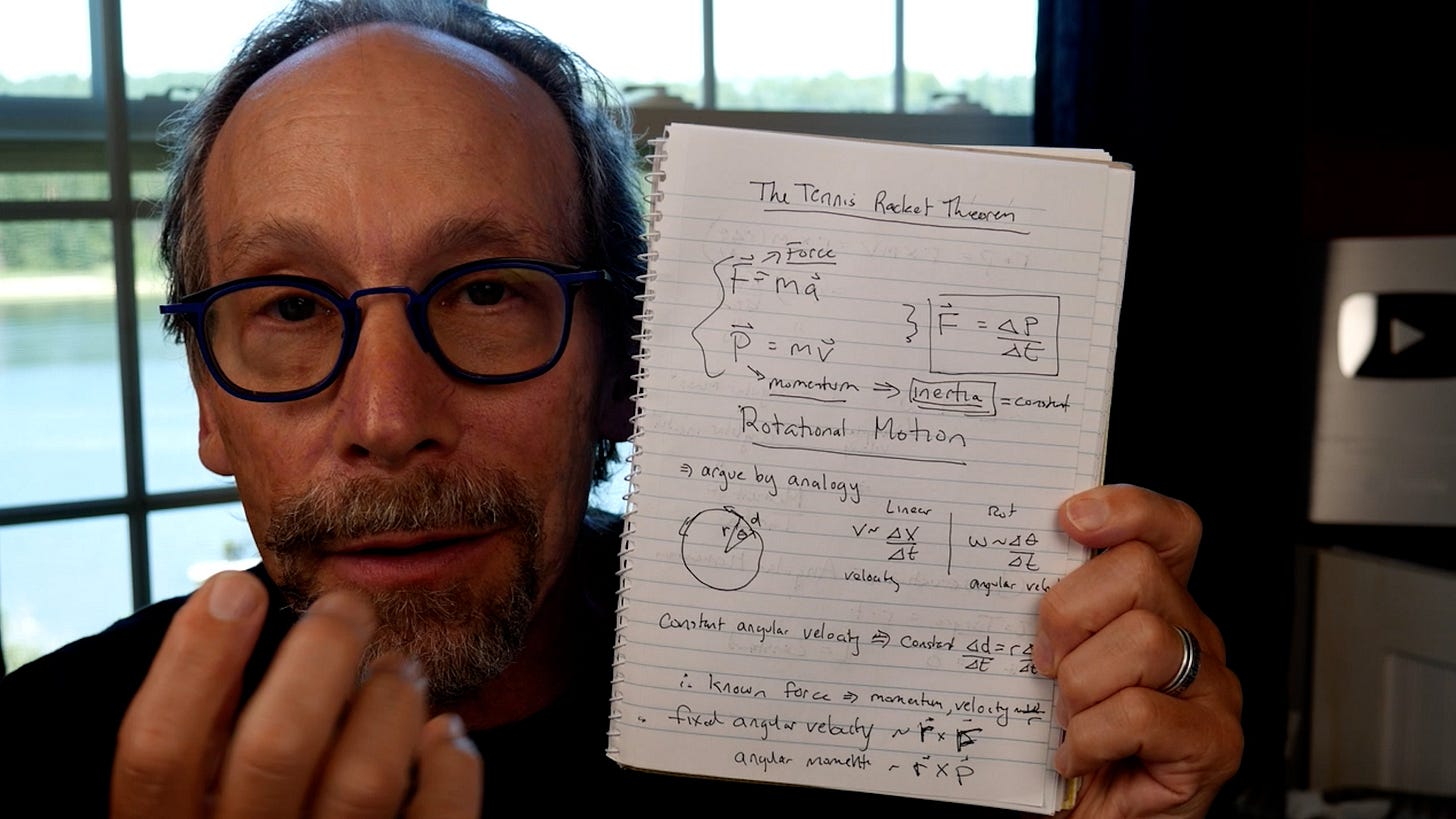 The Tennis Racket Theorem
→ Force
F⃗ = ma⃗
} F⃗ = ΔP/Δt
P⃗ = mv⃗
↳ momentum ⇒ inertia = constant
Rotational Motion
⇒ argue by analogy
Linear | Rot
r θ d
V ~ Δx/Δt | ω ~ Δθ/Δt
velocity angular
Constant angular velocity ⇒ constant Δd/Δt = r
∴ known force ⇒ momentum, velocity
fixed angular velocity ~ r⃗ ×
angular ~ r⃗ × p⃗